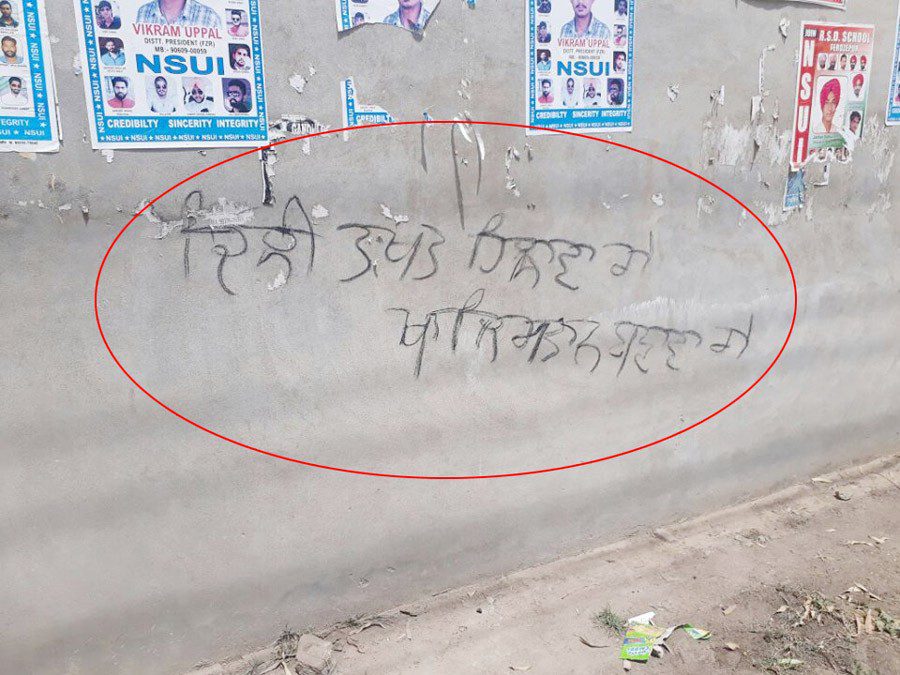 VIKRAM UPPAL
DISTT. PRESIDENT (FZR)
MB - 90609-00059
NSUI
CREDIBILTY ★ SINCERITY ★ INTEGRITY
NSUI
VIKRAM UPPAL
DISTT. PRESIDENT (FZR)
NSUI
CREDIBILTY SINCERITY INTEGRITY
CREDIBILTY
JOIN
NSUI
R.S.D. SCHOOL
FEROZEPUR
ਦਿਲੀ ਤਖਤ ਹਿਲਾਵਾ ਗੇ
ਖਾਲਿਸਤਾਨ ਬਣਾਵਾ ਗੇ